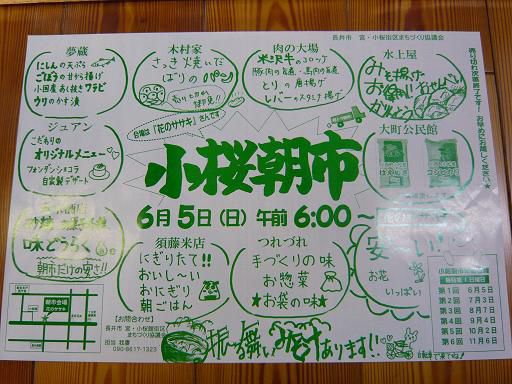 長井市 宮・小桜街区まちづくり協議会
夢蔵
にしんの天ぷら
ごぼうの甘から揚げ
小国産あくぬきワラビ
ウリのかす漬
木村家
さっき焼いた
ばりのパン
肉の大場
米沢牛のコロッケ
とりの唐揚げ
レバーのスタミナ揚げ
水上屋
みそ揚げ
かりんとう
売り切れ次第終了です! お早めにお越しください★
ジュアン
こだわりの
オリジナルメニュー
フォンダンショコラ
自家製デザート
会場は「花のササキ」さんです
小桜朝市
6月5日(日)午前6:00〜
大町公民館
味どうらく
朝市だけの安さ!!
須藤米店
にぎりたて!!
おいし〜い
おにぎり
朝ごはん
つれづれ
手づくりの味
お惣菜
★お袋の味★
花のササキ
安〜い!!
お花
いっぱい
朝市会場
花のササキ
【お問合わせ】
長井市 宮・小桜街区
まちづくり協議会
担当 我妻
090-8617-1323
振る舞いみそ汁あります!!
第1回 6月5日
第2回 7月3日
第3回 8月7日
第4回 9月4日
第5回 10月2日
第6回 11月6日